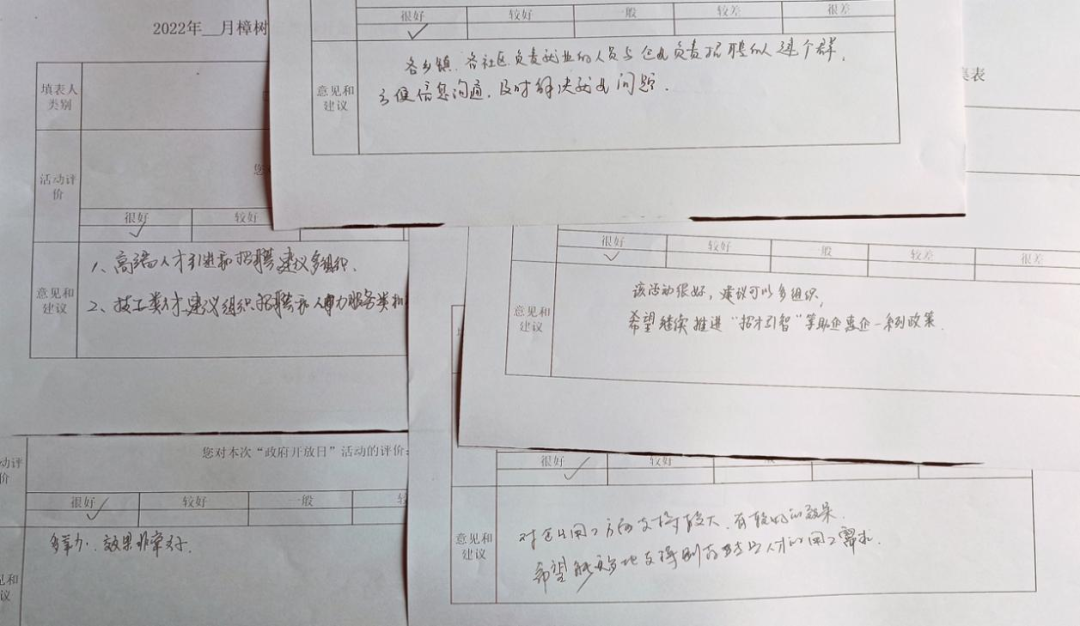 很好 较好 一般 较差 很差
各乡镇、各社区负责就业的人员与企业负责招聘的人建个群,
方便信息沟通,及时解决就业问题.
意见和
建议
2022年__月樟树
填表人
类别
活动评
价
您
很好 较好
1、高端人才引进和招聘建议多组织.
2、技工类人才建议组织招聘和人力服务类机
意见和
建议
表
很好 较好 一般 较差 很差
该活动很好,建议可以多组织,
希望继续推进“招才引智”等助企惠企一系列政策.
意见和
建议
动评
价
您对本次“政府开放日”活动的评价:
很好 较好 一般
多举办、效果非常好.
见和
议
很好 较好
对企业用工方面支持较大,有较好的效果.
希望能够
人才的用工需求.
意见和
建议